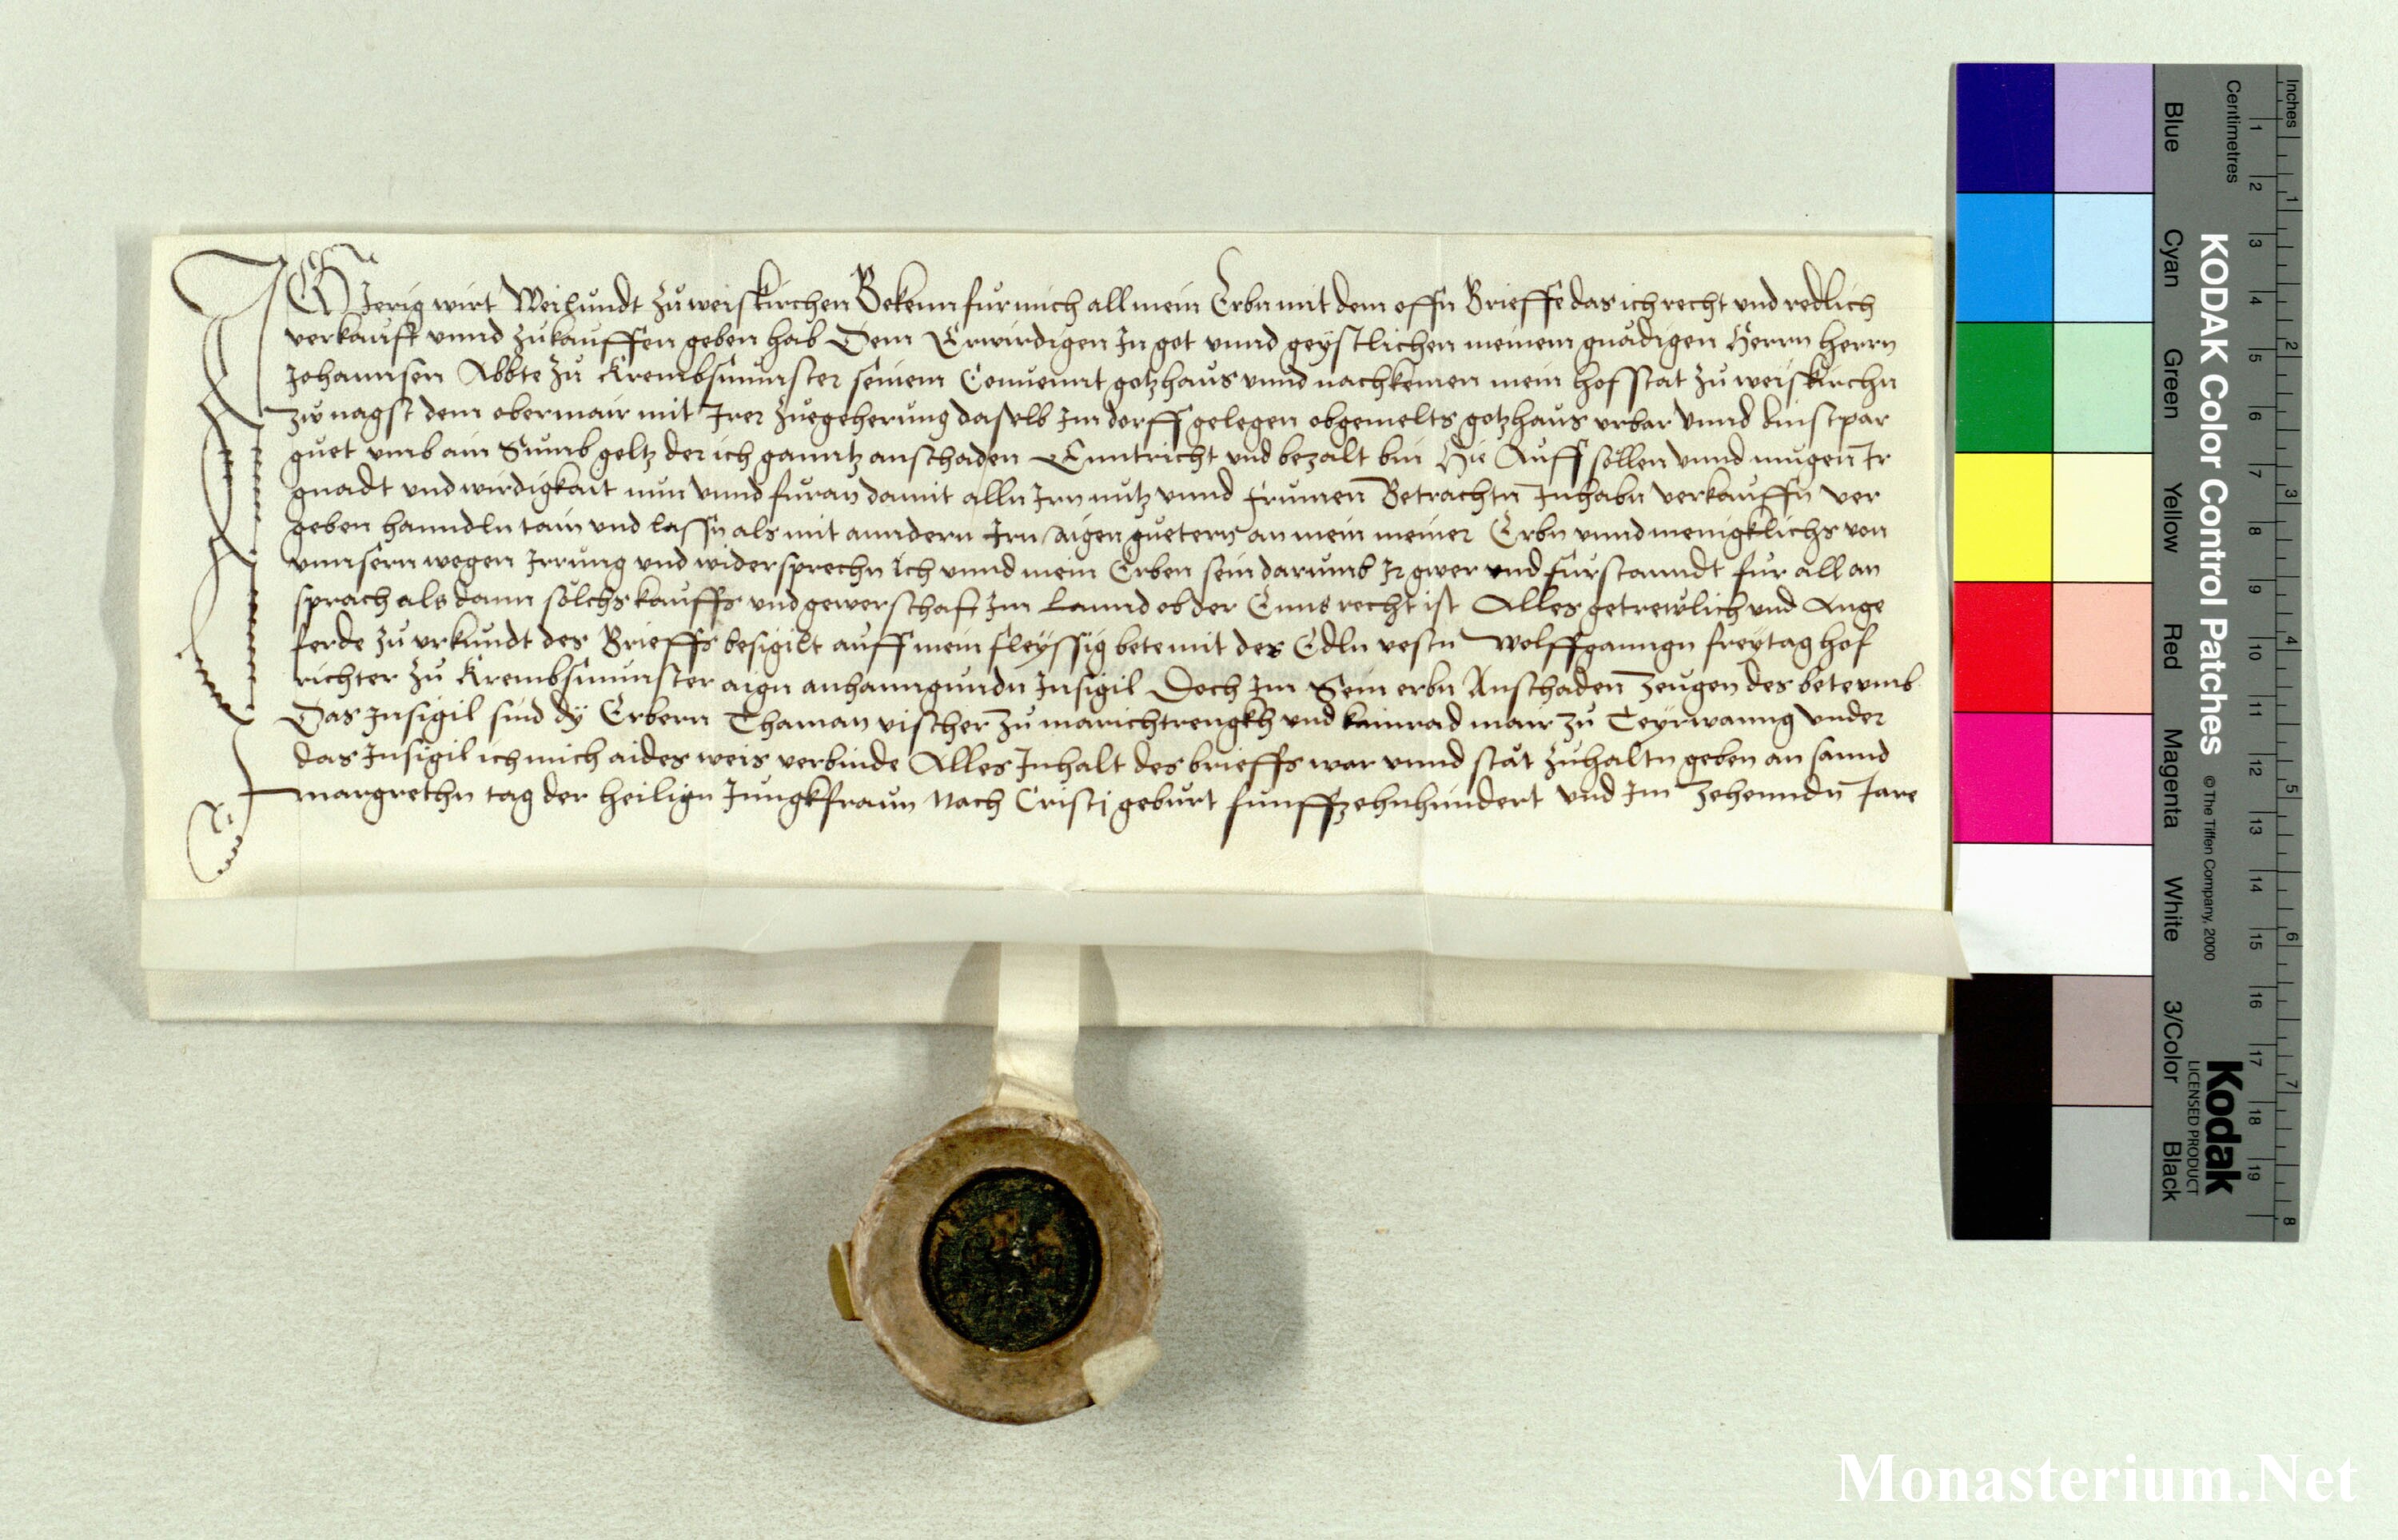 Ich Jorig wirt Weilundt zu weiskirchen Bekenn fur mich all mein Erbn mit dem offn Brieffe das ich recht und redlich
verkaufft unnd zukauffen geben hab Dem Erwirdigen In got unnd geystlichen meinem gnädigen Herrn herrn
Johannsen Abbte zu Krembsmunster seinem Convennt gotzhaus unnd nachkomen mein hofstat zu weiskirchn
zw nagst dem obermair mit Irer zuegehorung daselb Im dorff gelegen obgemelts gotzhaus urbar unnd dinstpar
guet umb ain Sumb geltz der ich ganntz anschaden Enntricht und bezalt bin Hie Auff sollen unnd mugen Ir
gnadt und wirdigkait nun unnd furan damit alln Irn nutz unnd frumen Betrachtn Inhabn verkauffn ver
geben hanndln tain und lassn als mit anndern Irn aigen guetern an mein meiner Erbn unnd menigklichs von
unnsern wegen Irrung und widersprechn Ich unnd mein Erben sein darumb Ir gwer und furstanndt fur all an
sprach als dann solchs kauffs und gewerschaft Im Lannd ob der Enns recht ist Alles getrewlich und Ange
ferde zu urkundt des Brieffs besigilt auff mein fleyssig bete mit des Edln vestn Wolffganngn freytag hof
richter zu Krembsmunster aign anhanngundn Insigil Doch Im Sein erbn Anschaden Zeugen des bete umb
Das Insigil sind dy Erbern Thaman vischer zu marichtrengkh und kainrad mair zu Teyrwanng under
das Insigil ich mich aides weis verbinde Alles Inhalt des brieffs war unnd stät zuhaltn geben an sannd
margrethn tag der heilign Jungkfraun Nach Cristi geburt funffzehnhundert und Im Zehenndn Jare
KODAK Color Control Patches © The Tiffen Company, 2000
Kodak
LICENSED PRODUCT
Inches 1 2 3 4 5 6 7 8
Centimetres 1 2 3 4 5 6 7 8 9 10 11 12 13 14 15 16 17 18 19
Blue Cyan Green Yellow Red Magenta White 3/Color Black
Monasterium.Net